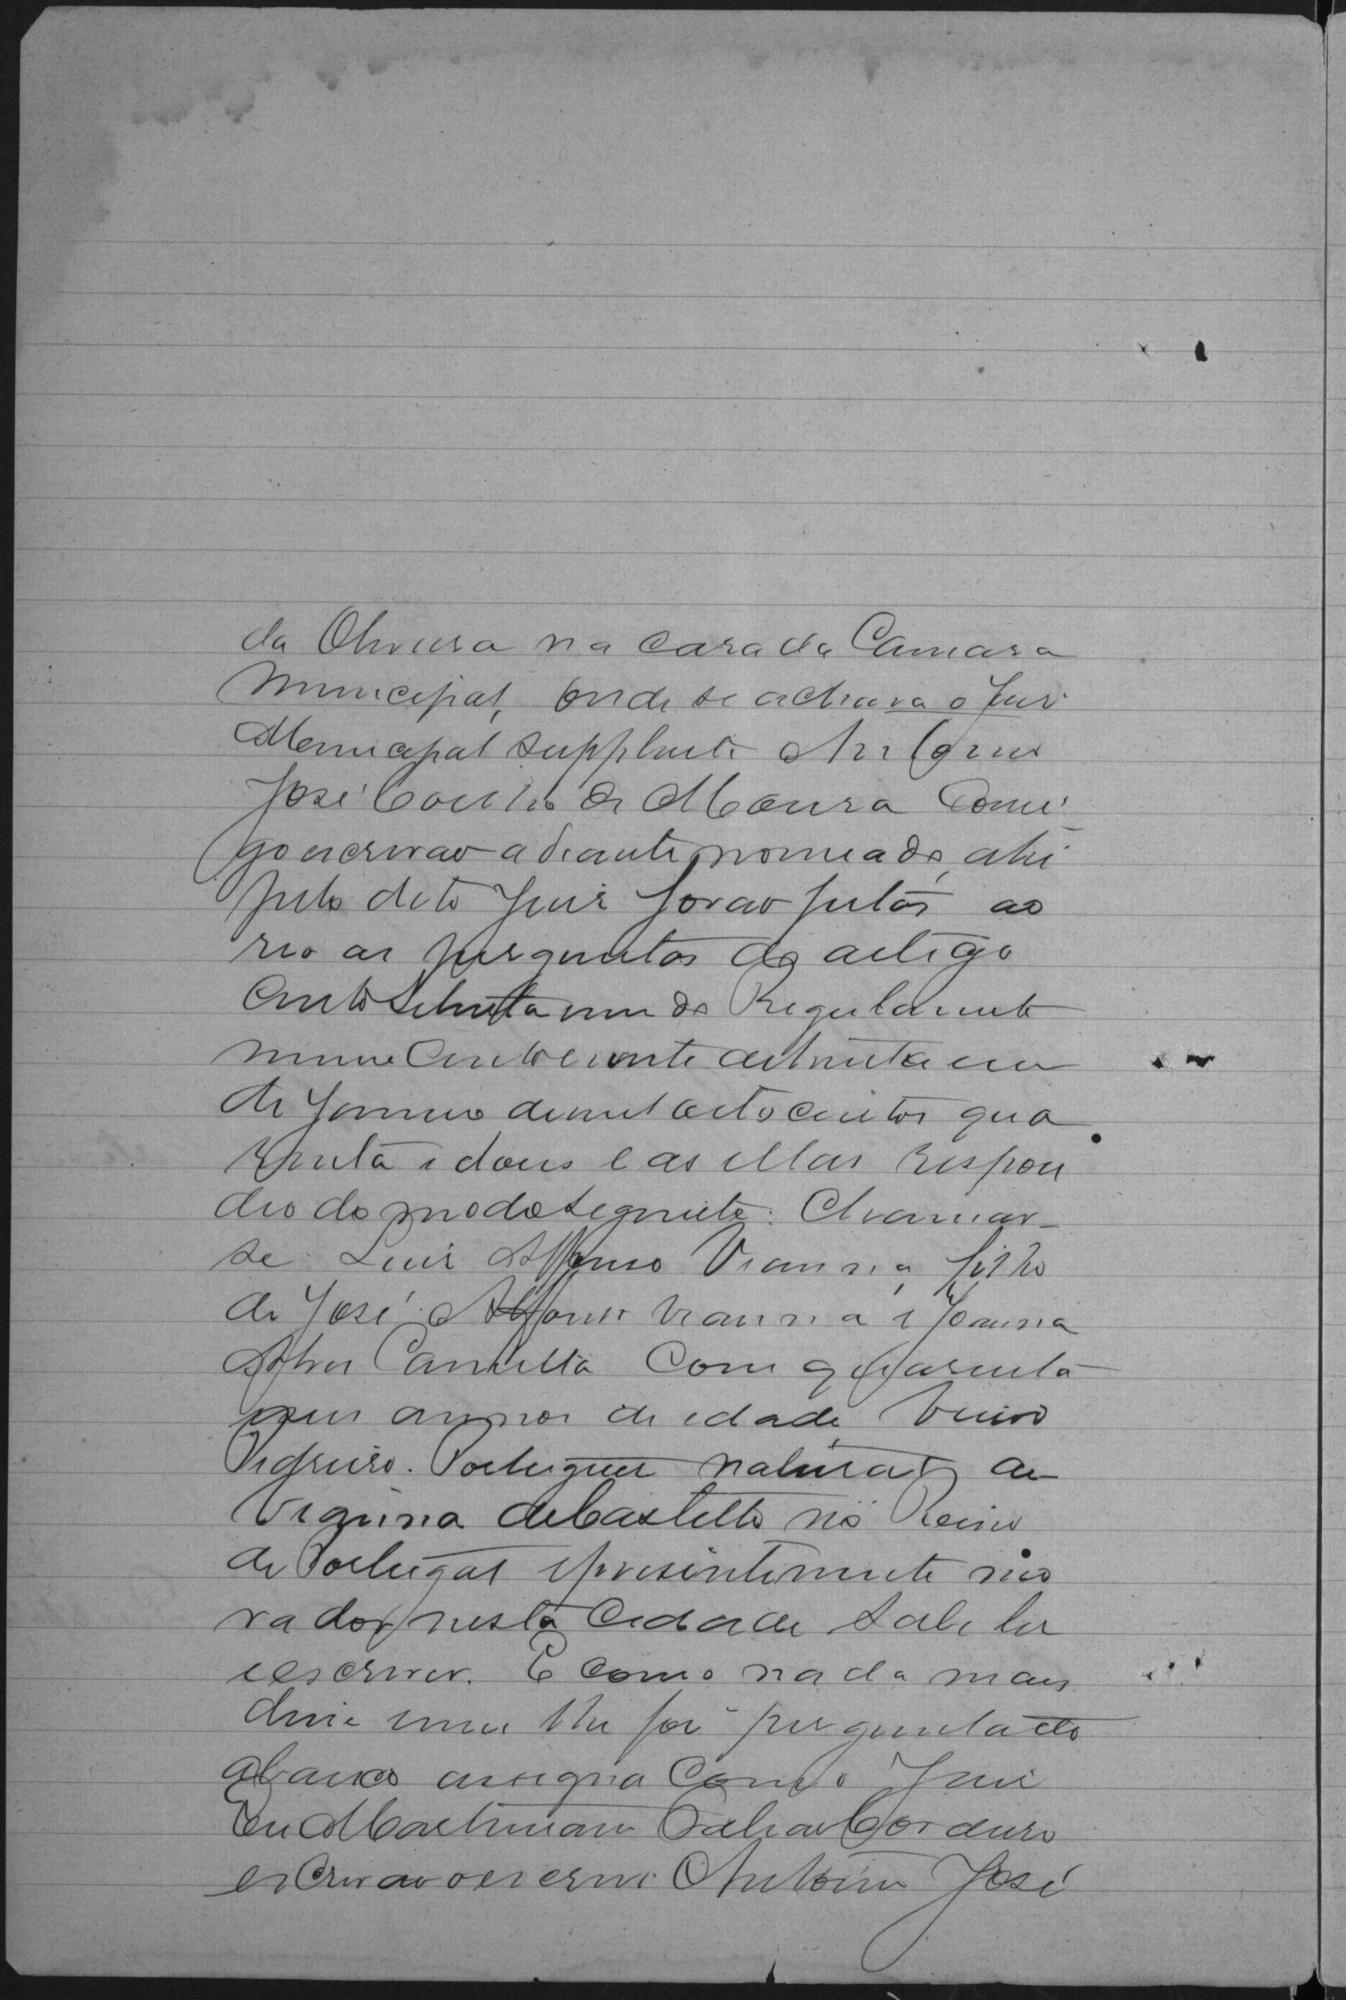 da Oliveira na casa da Camara
Municipal, onde se achava o Juis
Municipal supplente Antonio
José Coelho de Moura Comi
go escrivao adiante nomeado, ahi
pelo dito Juis forao feitas ao
reo as perguntas do artigo
Cento setenta um do Regulamento
numero Cento e vinte de trinta e um
de Janeiro de mil oito centos qua
renta e dous e as ellas respon
deo do modo seguinte: Chamar-
se Luis Affonso Vianna, filho
de José Affonso Vianna e Joanna
Alves Camella Com quarenta
annos de idade, Viuvo
Pedreiro. Portugues natural de
Vianna do Castello no Reino
de Portugal e presentemente mo
rador nesta Cidade Sabe ler
e escrever. E como nada mais
disse e nem lhe foi perguntado
abaixo assigna Com o Juis
Eu Martiniano Cordeiro
escrivao o escrevi Antonio José